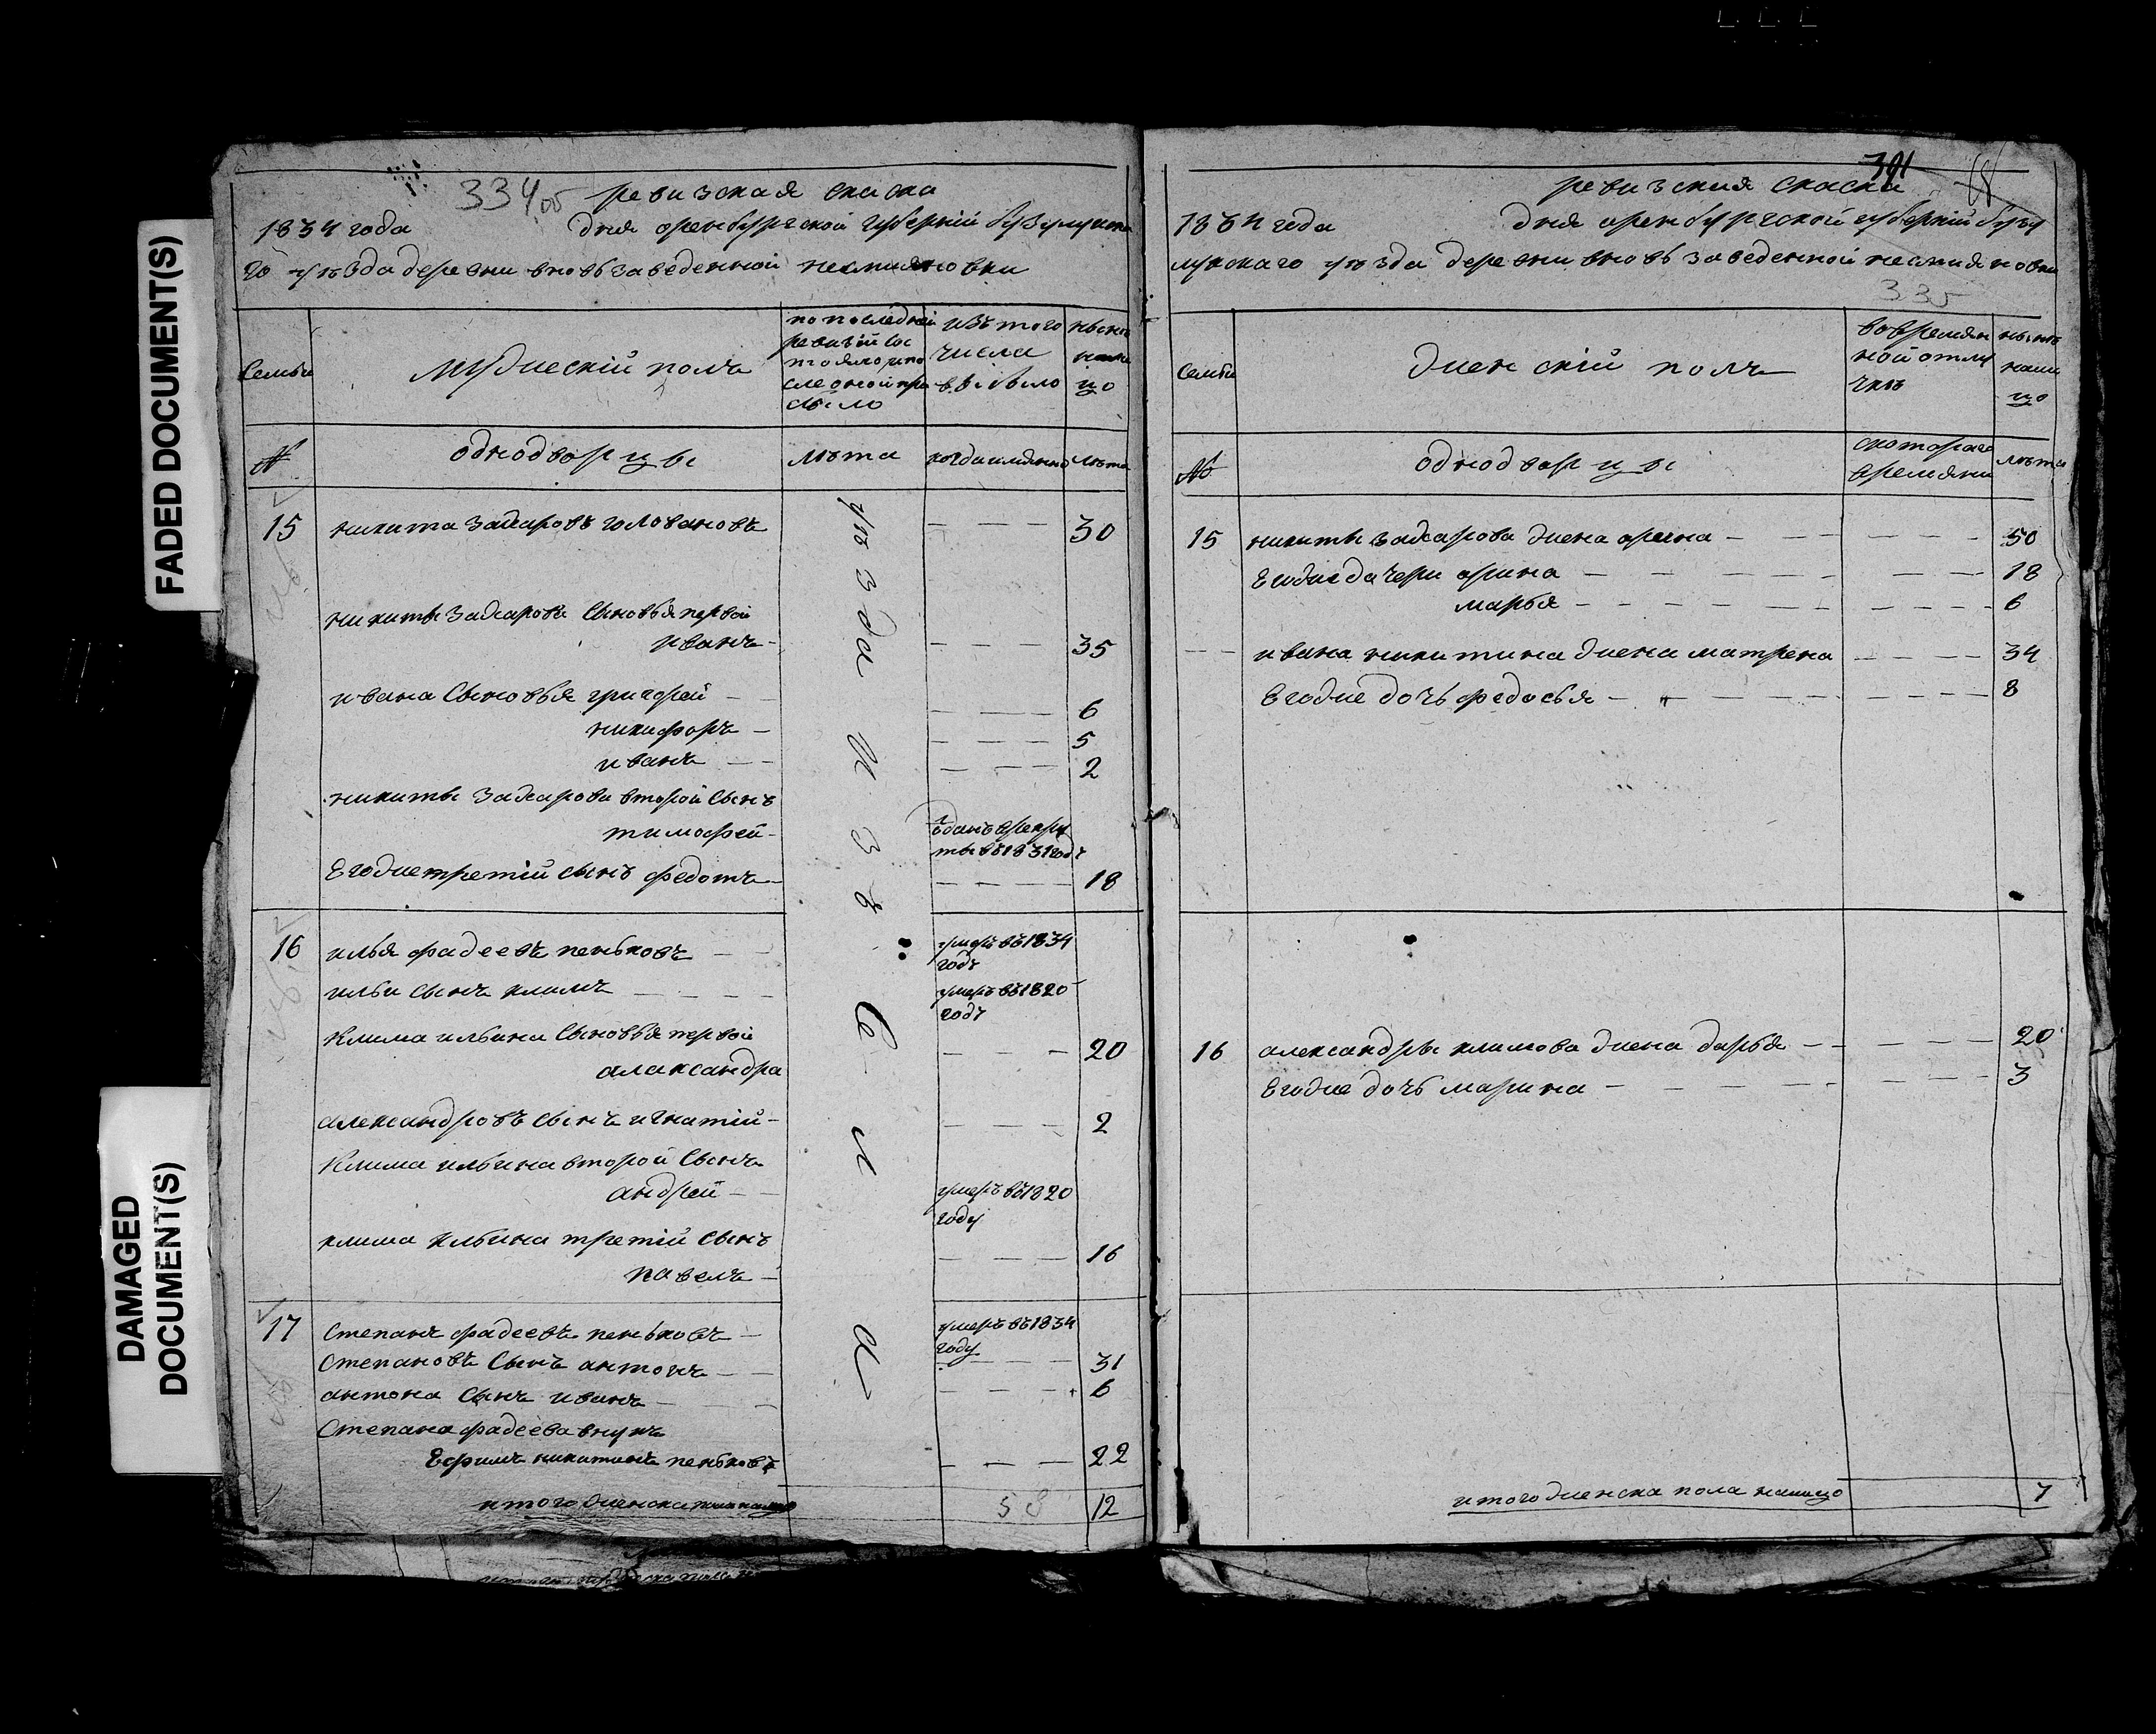 FADED DOCUMENT(S)
DAMAGED
DOCUMENT(S)
334об ревизская скаска
1834 года дня оренбургской губернiй бузулукска
го уѣзда деревни вновь заведенной
Семьи
мужескiй полъ
по последней
ревизiй сос
тояло и по
сле оной при
было
изъ того
числа
выбыло
нынѣ
на ли
цо
№
однодворцы
лѣта
когда имянно
лѣта
15 никита захаровъ головановъ — — — 30
никиты Захарова Сыновья первой
иванъ — — — 35
ивана Сыновья григорей — — — — 6
никифоръ — — — — 5
иванъ — — — — 2
никиты Захарова второй Сынъ
тимофей
ѣданъ врекру
ты въ 1831 году
Егоже третiй сынъ федотъ — — — — 18
16 илья фадеевъ пеньковъ — —
умеръ въ 1834
годѣ
ильи сынъ климъ — — — —
умеръ въ 1820
годѣ
Клима ильина Сыновья первой
алаксандра — — — 20
александровъ сынъ игнатiй — — — — 2
Клима ильина второй Сынъ
андрей — —
умеръ въ 1820
году
клима ильина третiй Сынъ
павелъ — — — — 16
17 Степанъ фадеевъ пеньковъ —
умеръ въ 1834
году
Степановъ Сынъ антонъ — — — — — 31
антона Сынъ иванъ — — — — 6
Степана фадеева внукъ
Ефимъ никитинъ пеньковъ — — — 22
итого 58 12
391
ревизския скаски
1834 года дня оренбургской губернiй бузу
лукскаго уѣзда деревни вновь заведенной
335
семьи
женскiй полъ
вовремян
ной отлу
чкѣ
нынѣ
нали
цо
№
однодворцы
скотораго
времяни
лѣта
15 никиты захарова жена орина — — — — — — 50
Егоже дочери орина — — — — — — — 18
марья — — — — — — — — 6
— — ивана никитина жена матрена — — — — 34
Егоже дочь федосья — — — — — — — 8
16 александры климова жена дарья — — — — — 20
Егоже дочь марина — — — — — — 3
итого женска пола налицо 7